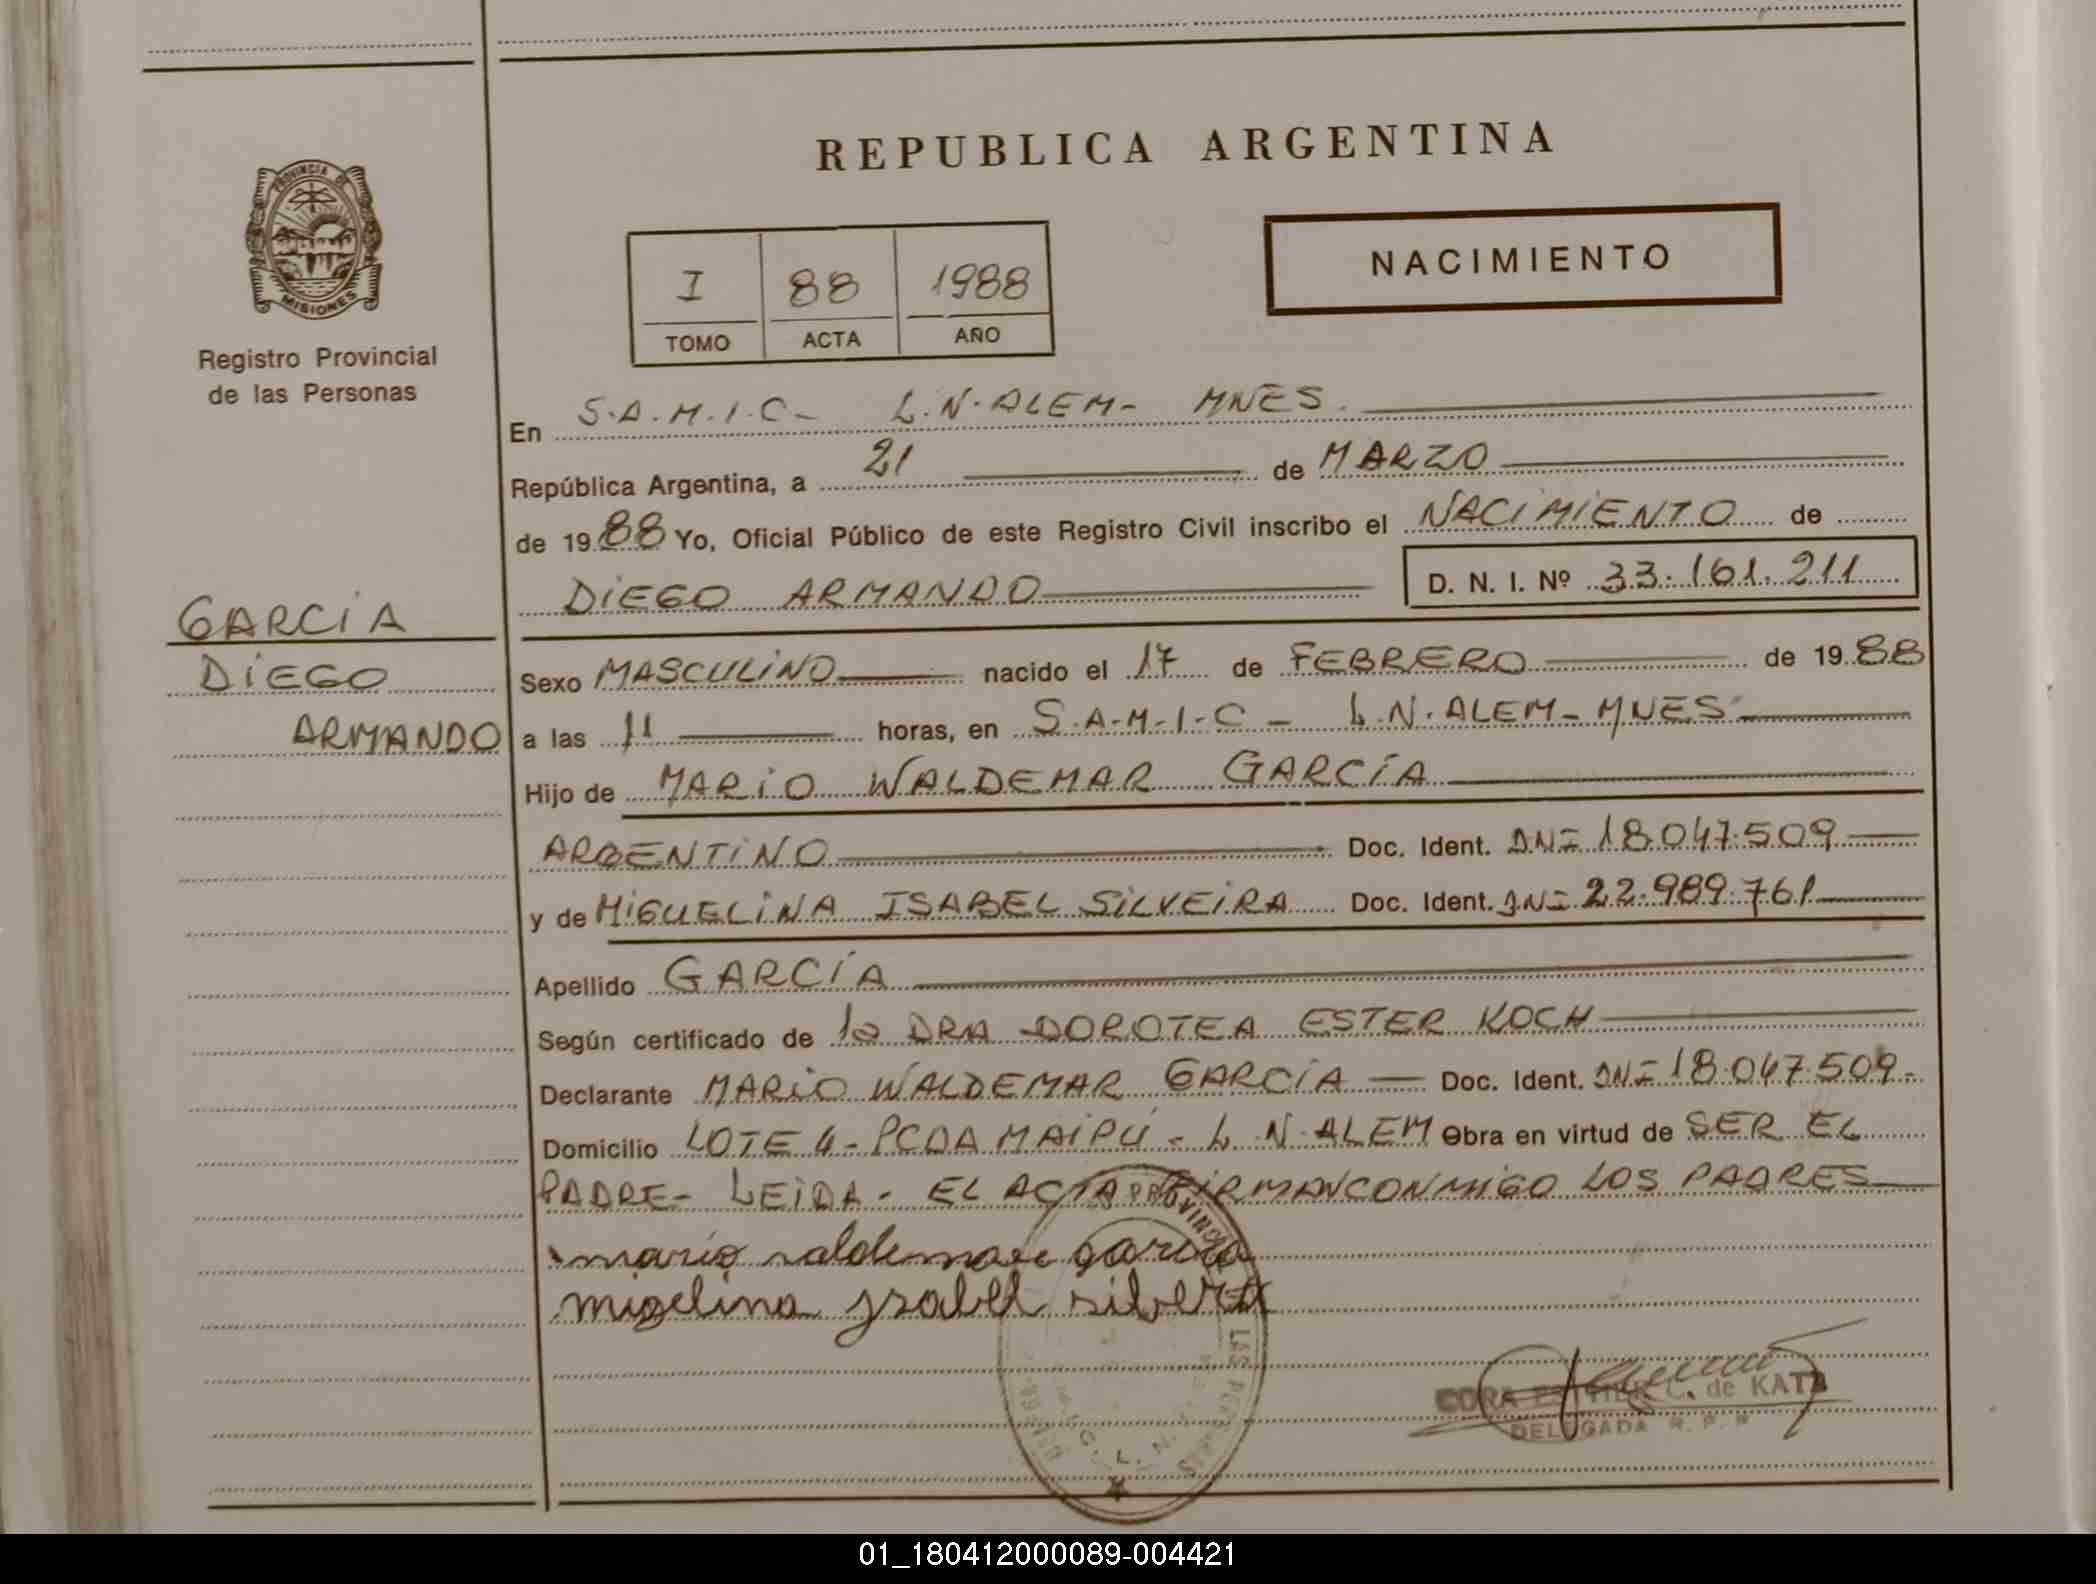 REPUBLICA ARGENTINA
PROVINCIA DE
MISIONES
Registro Provincial
de las Personas
NACIMIENTO
I 88 1988
TOMO ACTA AÑO
En S.A.M.I.C- L.N.ALEM- MNES.
República Argentina, a 21 de MARZO
de 1988 Yo, Oficial Público de este Registro Civil inscribo el NACIMIENTO de
DIEGO ARMANDO D. N. I. Nº 33.161.211
GARCIA
DIEGO
ARMANDO
Sexo MASCULINO nacido el 17 de FEBRERO de 1988
a las 11 horas, en S.A-M-I-C- L.N.ALEM-MNES
Hijo de MARIO WALDEMAR GARCÍA
ARGENTINO Doc. Ident. DNI 18.047.509
y de MIGUELINA ISABEL SILVEIRA Doc. Ident. DNI 22.989.761
Apellido GARCÍA
Según certificado de la DRA DOROTEA ESTER KOCH
Declarante MARIO WALDEMAR GARCÍA Doc. Ident. DNI 18.047.509-
Domicilio LOTE 4-PCDA MAIPÚ- L.N.ALEM Obra en virtud de SER EL
PADRE- LEIDA- EL ACTA FIRMANCONMIGO LOS PADRES
mario waldemar garcia
migelina ysabel silvera
PROVINCIAL
LAS PERSONAS
L. N.
C. de KATZ
DELEGADA R. P. P.
01_180412000089-004421